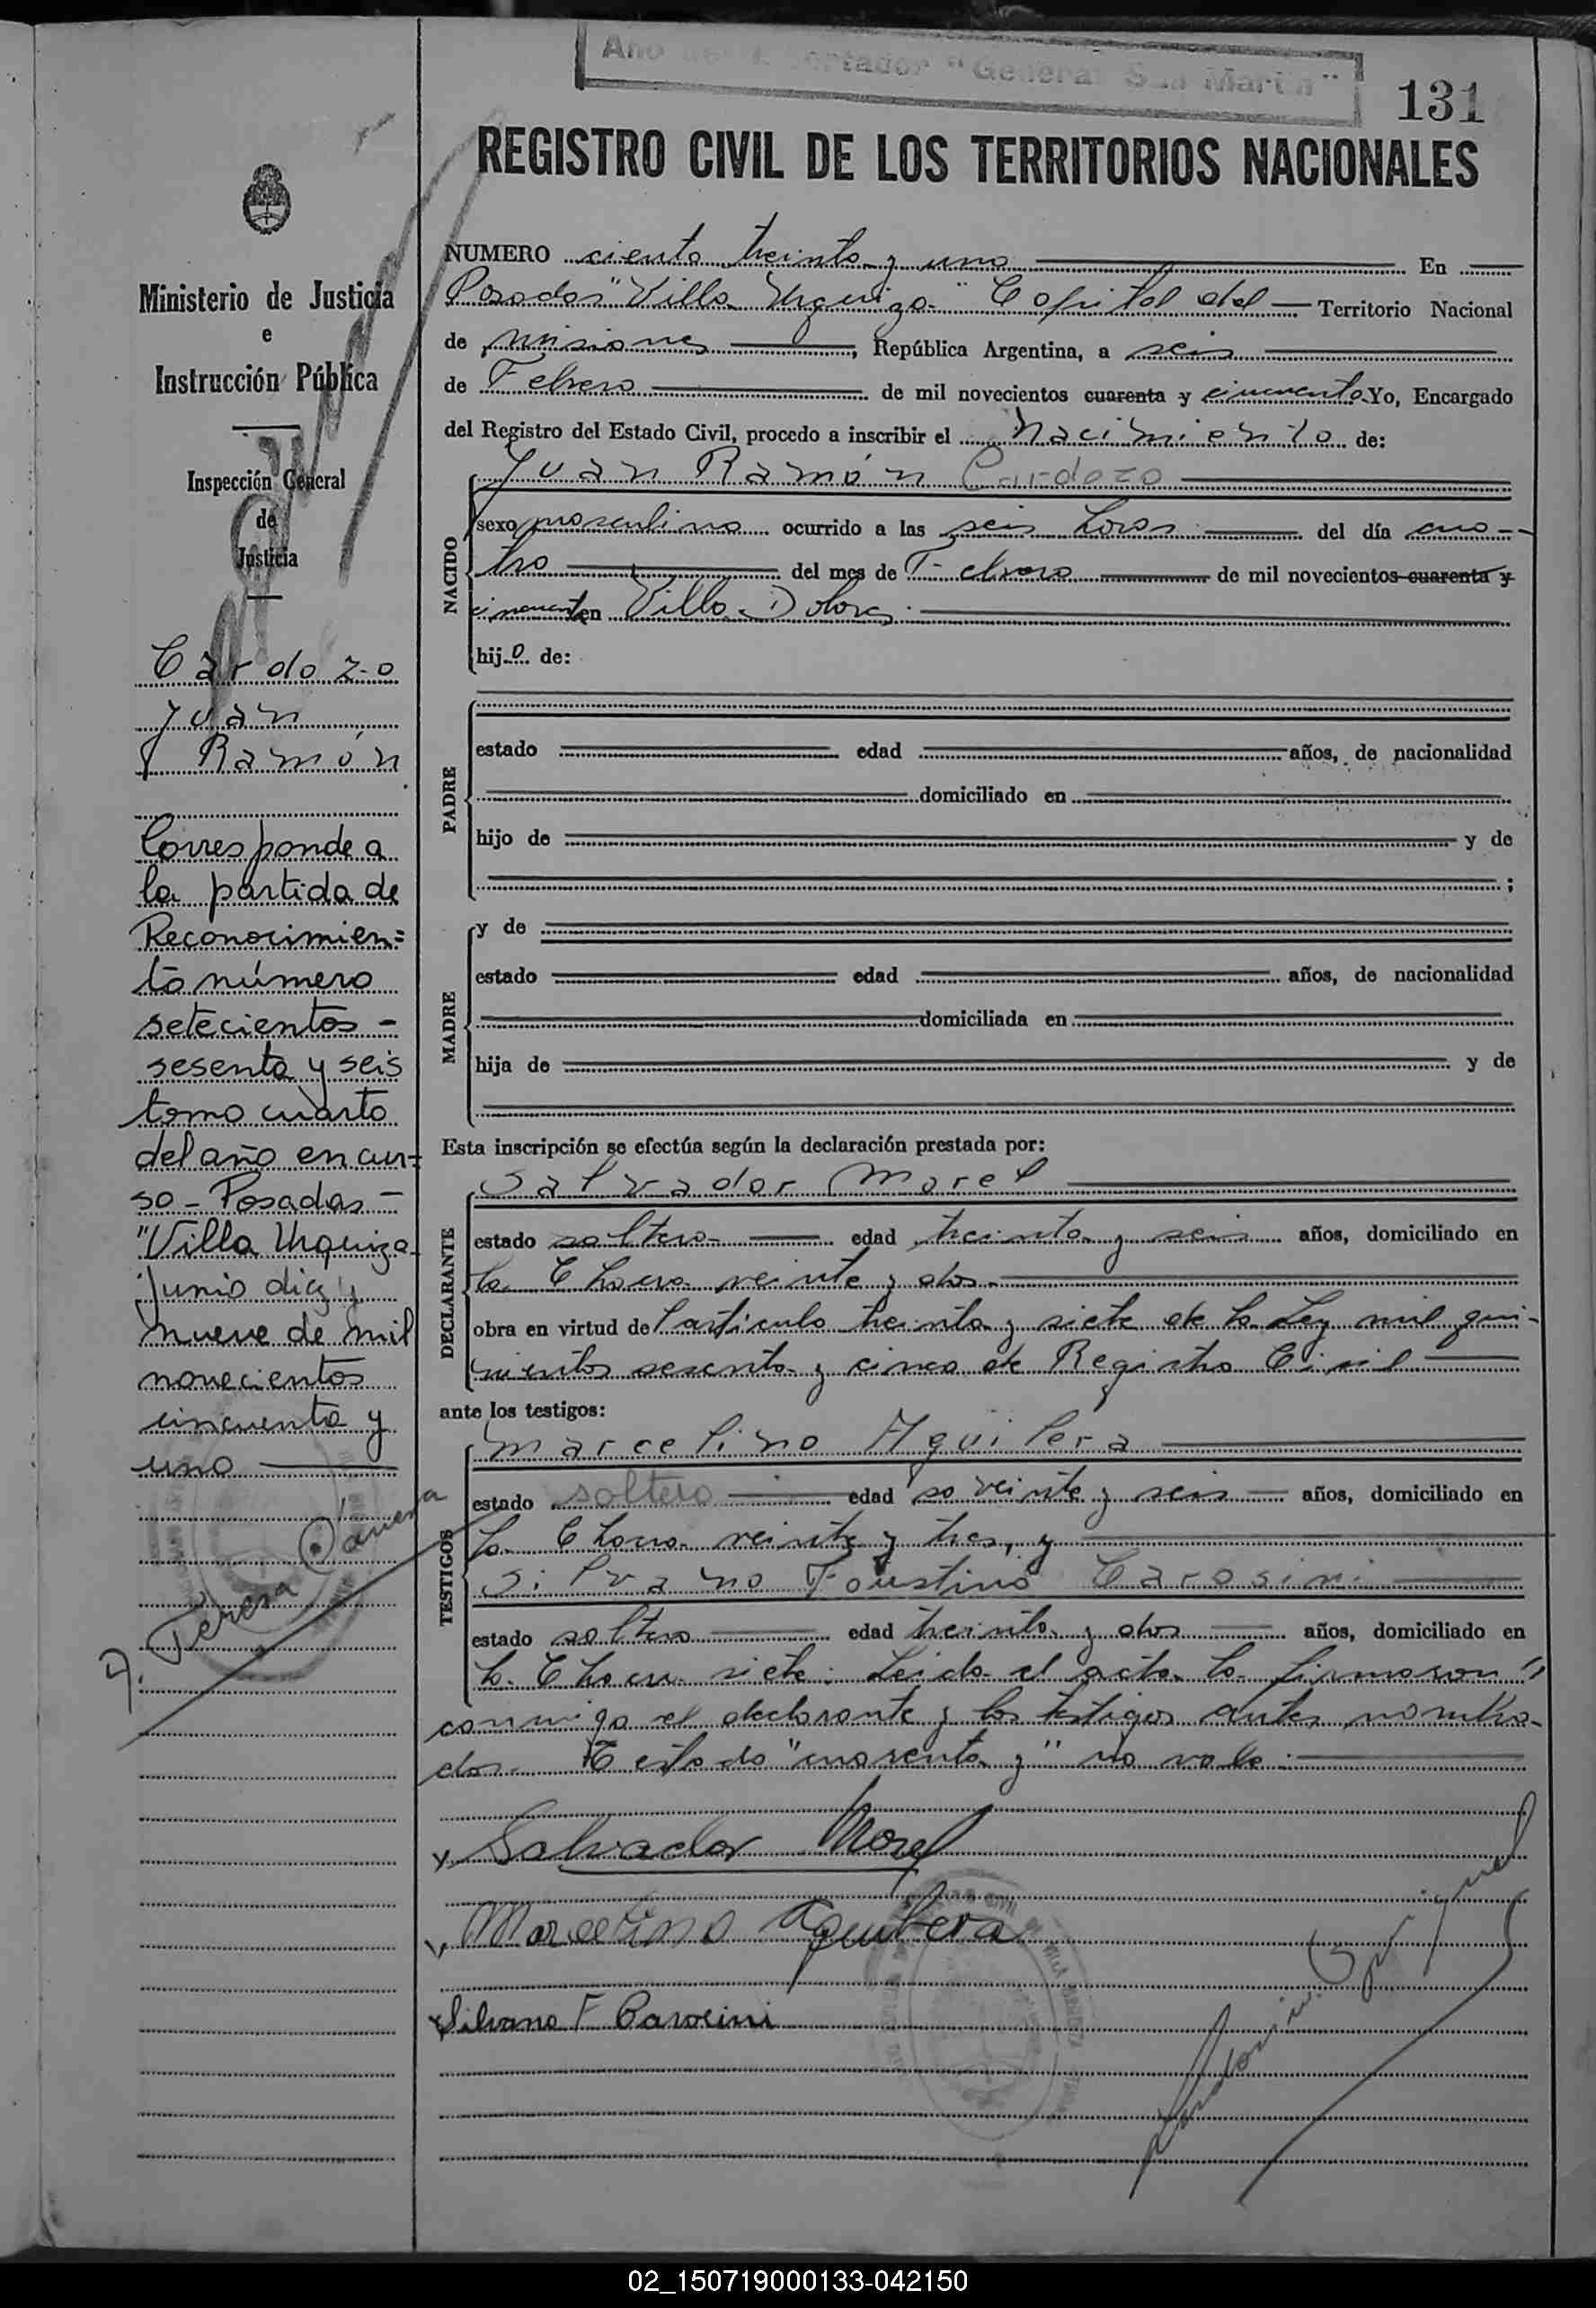 Año del Libertador "General San Martín"
131
REGISTRO CIVIL DE LOS TERRITORIOS NACIONALES
Ministerio de Justicia
e
Instrucción Pública
Inspección General
de
Justicia
Cardozo
Juan
Ramón
Corresponde a
la partida de
Reconocimien=
to número
setecientos -
sesenta y seis
tomo cuarto
del año en cur=
so - Posadas -
"Villa Urquiza
junio diez y
nueve de mil
novecientos
cincuenta y
uno
A. Teresa
NUMERO ciento treinta y uno En
Posadas "Villa Urquiza" Capital del Territorio Nacional
de Misiones, República Argentina, a seis
de Febrero de mil novecientos cuarenta y cincuenta Yo, Encargado
del Registro del Estado Civil, procedo a inscribir el Nacimiento de:
NACIDO
Juan Ramón Cardozo
sexo masculino ocurrido a las seis horas del día cua-
tro del mes de Febrero de mil novecientos cuarenta y
cincuenta en Villa Dolores
hijo de:
PADRE
estado edad años, de nacionalidad
domiciliado en
hijo de y de
;
MADRE
y de
estado edad años, de nacionalidad
domiciliada en
hija de y de
Esta inscripción se efectúa según la declaración prestada por:
DECLARANTE
Salvador Morel
estado soltero edad treinta y seis años, domiciliado en
la Chacra veinte y dos
obra en virtud del artículo treinta y siete de la Ley mil qui-
nientos sesenta y cinco de Registro Civil
ante los testigos:
TESTIGOS
Marcelino Aguilera
estado soltero edad veinte y seis años, domiciliado en
la Chacra veinte y tres, y
Silvano Faustino Carosini
estado soltero edad treinta y dos años, domiciliado en
la Chacra siete. Leida el acta la firmaron
conmigo el declarante y los testigos antes nombra-
dos. Testado "cuarenta y" no vale.
Salvador Morel
Marcelino Aguilera
Silvano F Carosini
02_150719000133-042150